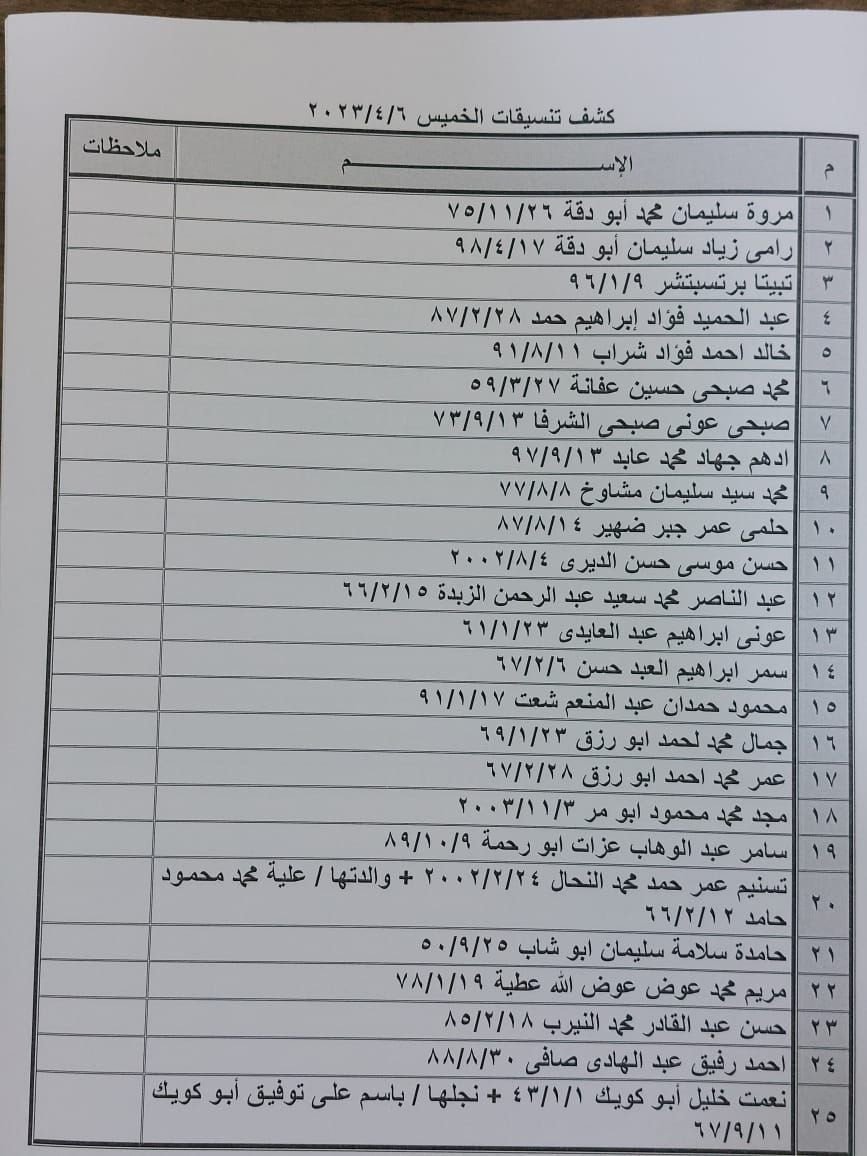 كشف تنسيقات الخميس ٢٠٢٣/٤/٦
م الإســـــــــــــــــــــم ملاحظات
١ مروة سليمان محمد أبو دقة ٧٥/١١/٢٦
٢ رامى زياد سليمان أبو دقة ٩٨/٤/١٧
٣ تبيتا برتسبتشر ٩٦/١/٩
٤ عبد الحميد فؤاد إبراهيم حمد ٨٧/٢/٢٨
٥ خالد احمد فؤاد شراب ٩١/٨/١١
٦ محمد صبحى حسين عفانة ٥٩/٣/٢٧
٧ صبحى عونى صبحى الشرفا ٧٣/٩/١٣
٨ ادهم جهاد محمد عابد ٩٧/٩/١٣
٩ محمد سيد سليمان مشاوخ ٧٧/٨/٨
١٠ حلمى عمر جبر ضهير ٨٧/٨/١٤
١١ حسن موسى حسن الديرى ٢٠٠٢/٨/٤
١٢ عبد الناصر محمد سعيد عبد الرحمن الزبدة ٦٦/٢/١٥
١٣ عونى ابراهيم عبد العايدى ٦١/١/٢٣
١٤ سمر ابراهيم العبد حسن ٦٧/٢/٦
١٥ محمود حمدان عبد المنعم شعت ٩١/١/١٧
١٦ جمال محمد لحمد ابو رزق ٦٩/١/٢٣
١٧ عمر محمد احمد ابو رزق ٦٧/٢/٢٨
١٨ مجد محمد محمود ابو مر ٢٠٠٣/١١/٣
١٩ سامر عبد الوهاب عزات ابو رحمة ٨٩/١٠/٩
٢٠ تسنيم عمر حمد محمد النحال ٢٠٠٢/٢/٢٤ + والدتها / علية محمد محمود
حامد ٦٦/٢/١٢
٢١ حامدة سلامة سليمان ابو شاب ٥٠/٩/٢٥
٢٢ مريم محمد عوض عوض الله عطية ٧٨/١/١٩
٢٣ حسن عبد القادر محمد النيرب ٨٥/٢/١٨
٢٤ احمد رفيق عبد الهادى صافى ٨٨/٨/٣٠
٢٥ نعمت خليل أبو كويك ٤٣/١/١ + نجلها / باسم على توفيق أبو كويك
٦٧/٩/١١